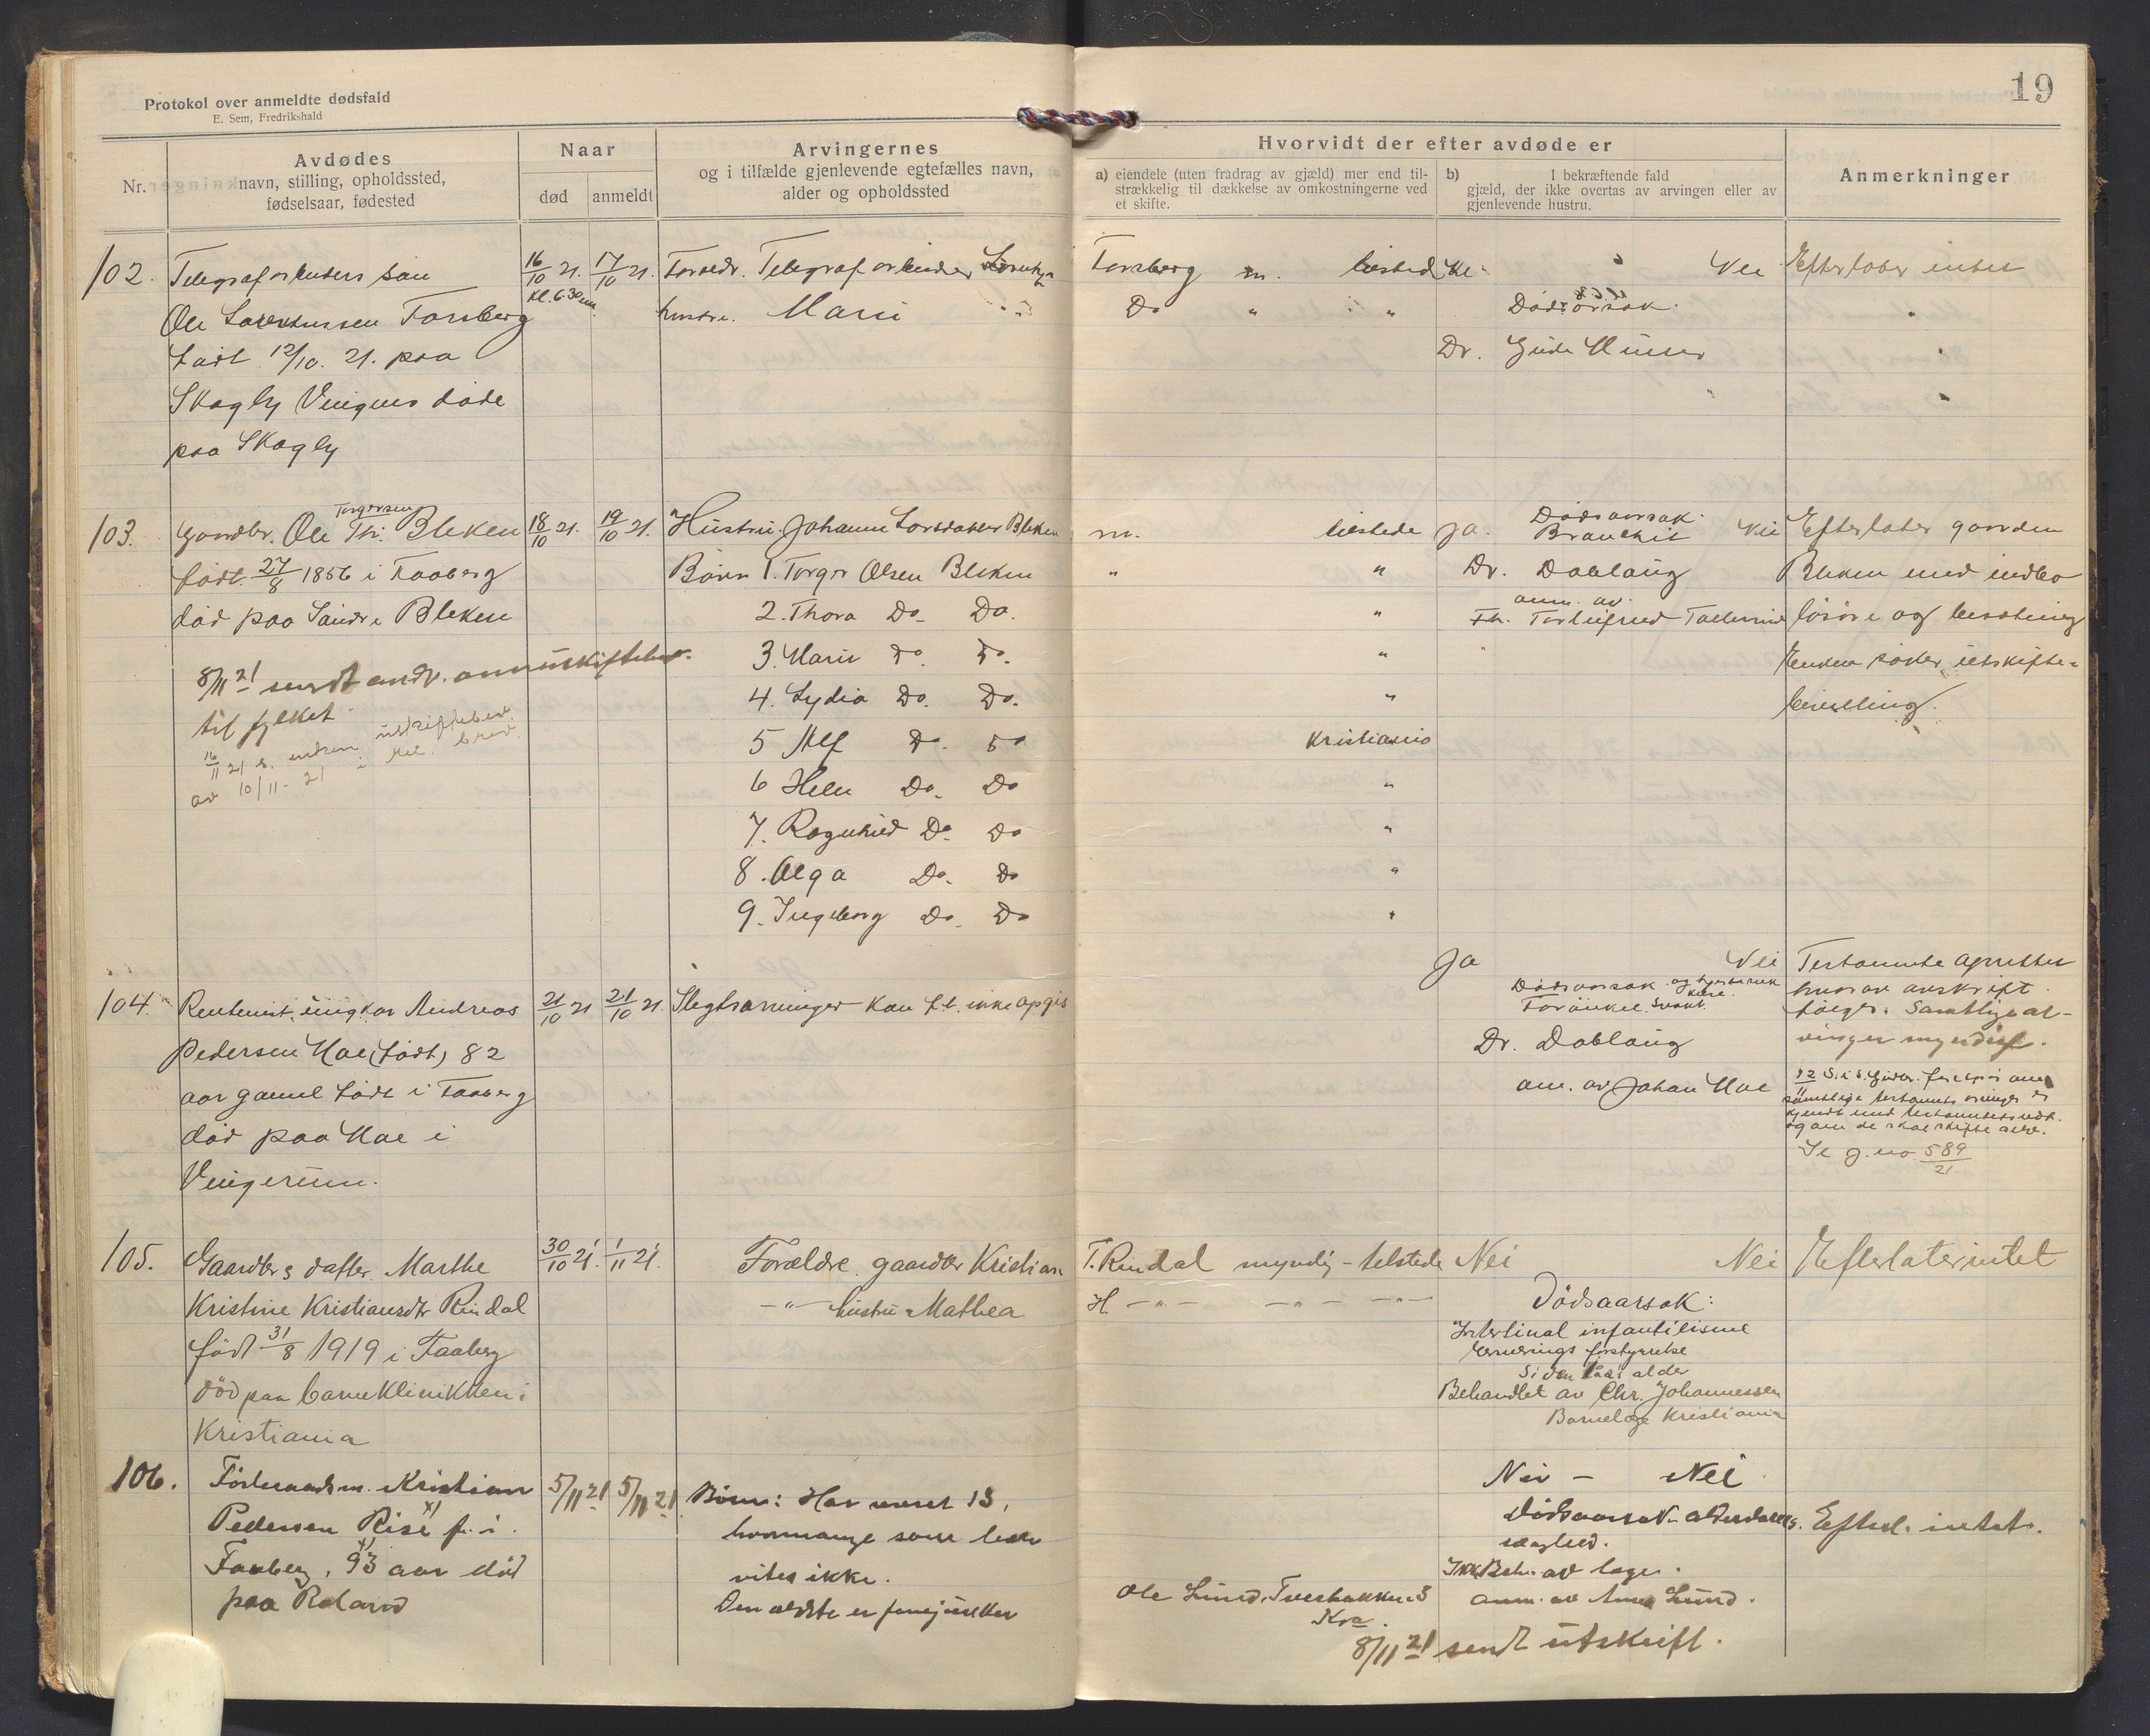 19
Protokol over anmeldte dødsfald
E. Sem, Fredrikshald
Nr.
Avdødes
navn, stilling, opholdssted,
fødselsaar, fødested
Naar
død
anmeldt
Arvingernes
og i tilfælde gjenlevende egtefælles navn,
alder og opholdssted
Hvorvidt der efter avdøde er
a) eiendele (uten fradrag av gjæld) mer end til-
strækkelig til dækkelse av omkostningerne ved
et skifte.
b) I bekræftende fald
gjæld, der ikke overtas av arvingen eller av
gjenlevende hustru.
Anmerkninger
102.
Telegrafarbeiders søn
Ole Forsberg
født 12/10. 21. paa
Skogly Vingnes døde
paa Skogly
16/10 21. Kl. 6.30
17/10 21.
Foreldr. Telegrafarbeider
hustru. Marie
Forsberg m. tilstede
Do " "
Nei
Dødsorsak.
Dr.
Efterlater intet
103.
Gaardbr. Ole Th. Torgersen Bleken
født. 27/8 1856 i Faaberg
død paa Søndre Bleken
8/11 21 sendt andr. om uskiftebev.
til fylket
16/11 21 uskiftebev.
av 10/11 - 21 i
18/10 21.
19/10 21.
Hustru. Johanne Larsdatter Bleken
Børn 1. Torger Olsen Bleken
2. Thora Do. Do.
3. Marie Do. Do.
4. Lydia Do. Do.
5 Alf Do. Do
6 Do. Do
7. Ragnhild Do. Do
8. Olga Do. Do
9. Ingeborg Do. Do
m. tilstede
" "
"
"
"
Kristiania
"
"
"
"
Ja. Nei
Dødsaarsak.
Dr. Dobloug
anm. av.
Efterlater gaarden
Bleken med indbo
løsøre og besætning
Enken søker uskifte-
bevilling.
104.
Rentenist, ungkar Andreas
Pedersen Moe (født) 82
aar gammel født i Faaberg
død paa Moe i
Vingerum.
21/10 21
21/10 21.
Slegtsarvinger kan f.t. ikke opgis
Ja Nei
Dødsaarsak
Dr. Dobloug
anm. av Johan Moe
Testamente oprettet
hvorav avskrift
følger. Samtlige ar-
vinger myndige.
samtlige testaments arvinger er
kjendt med testamentets indh.
og om de skal skifte selv.
Se g. no. 589/21.
105.
Gaardbrs datter Marthe
Kristine Kristiansdtr Rindal
født 31/8 1919 i Faaberg
død paa barneklinikken i
Kristiania
30/10 21.
1/11 21.
Forældre gaardbr Kristian
-"- hustru Mathea
T. Rindal myndig - tilstede
H. -"- -"- -"-
Nei Nei
Dødsaarsak:
Intestinal infantilisme
Ernærings forstyrrelse
siden 1 aars alder
Behandlet av Chr. Johannessen
Barnelæge Kristiania
Efterlater intet
106.
Føderaadsm. Kristian
Pedersen Rise x) f. i
Faaberg, 93 x) aar død
paa Roland
5/11 21
5/11 21
Børn: Har været 13,
hvormange som lever
vites ikke.
Den ældste er
Ole Lund,
Kra.
Nei - Nei
Dødsaarsak. alderdoms
svaghed.
Ikke Beh. av læge.
anm. av Lund.
8/11 21 sendt utskrift.
Efterl. intet.